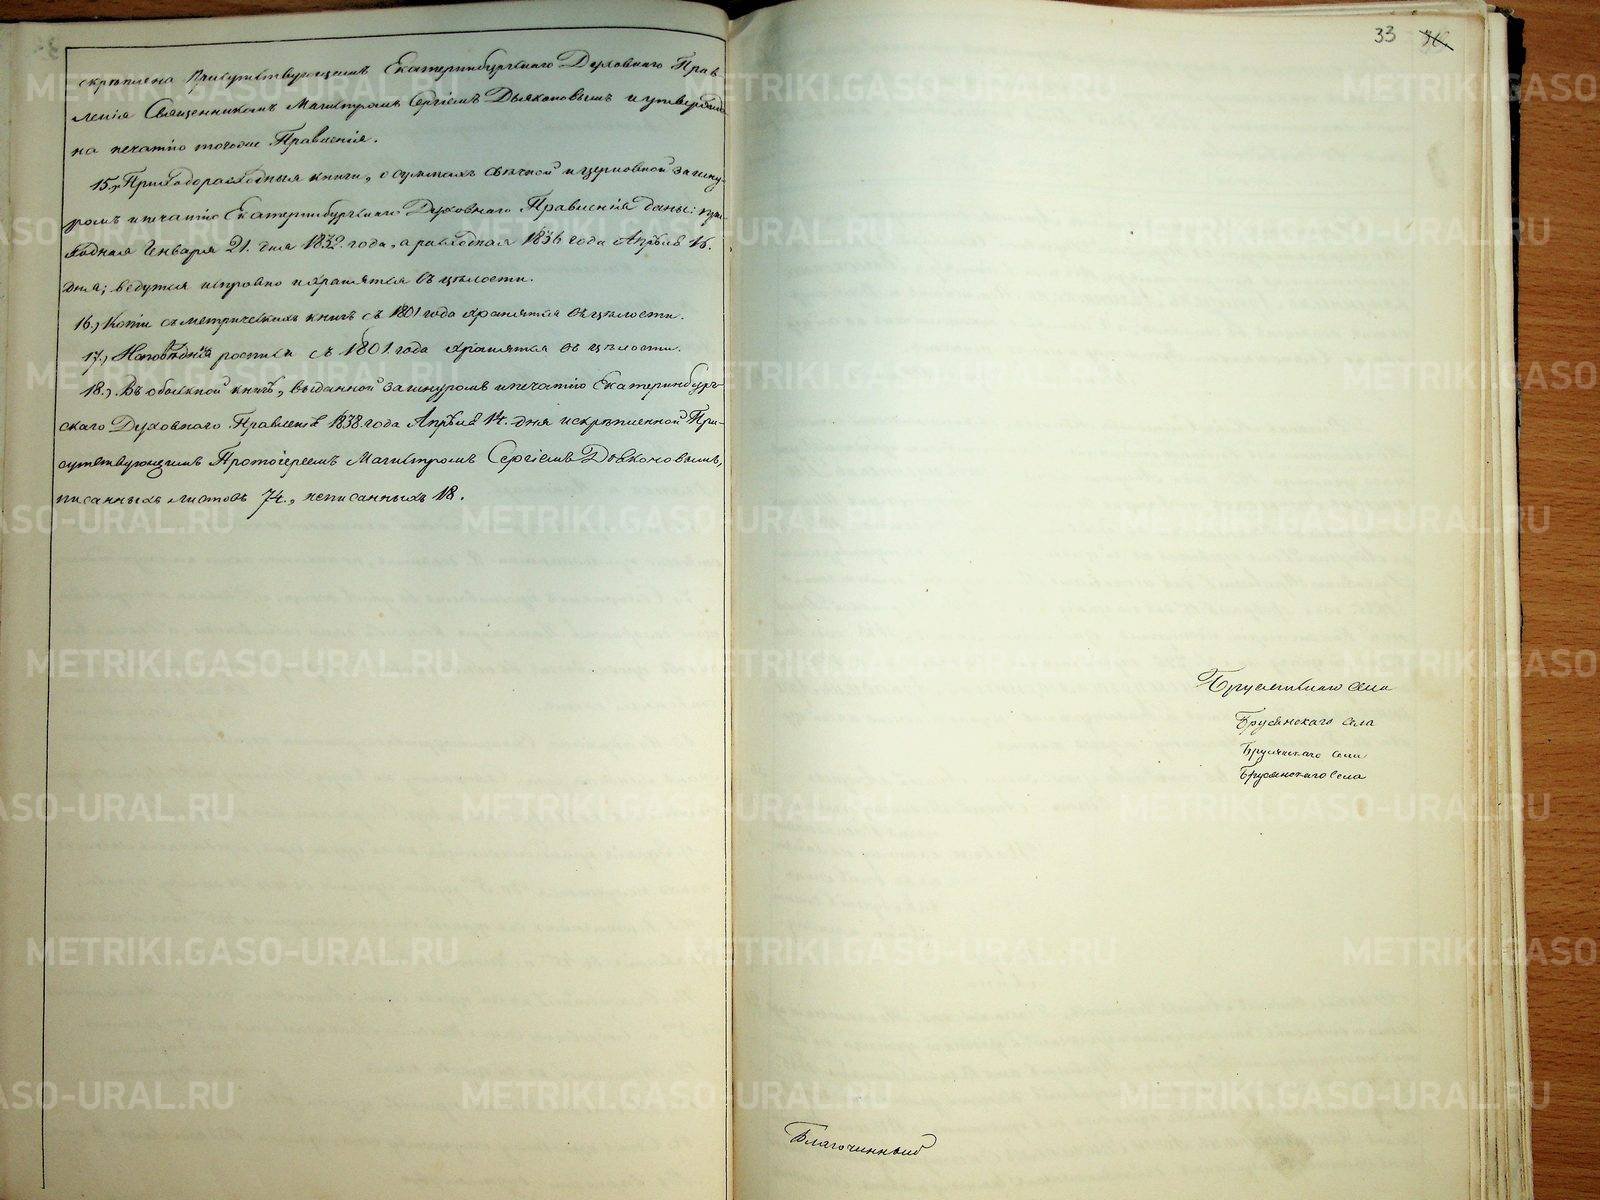 скрѣплена Присутствующимъ Екатеринбургскаго Духовнаго Прав-
ленія Священникомъ Магистромъ Сергіемъ Дьяконовымъ и утвержде-
на печатію тогоже Правленія.
15., Приходорасходныя книги, о суммахъ свѣчной и церковной за шну-
ромъ и печатію Екатеринбургскаго Духовнаго Правленія даны: при-
ходная Генваря 21. дня 1832. года, а расходная 1836 года Апрѣля 16.
дня; ведутся исправно и хранятся въ цѣлости.
16., Копіи съ метрическихъ книгъ съ 1801 года хранятся въ цѣлости.
17., Исповѣдныя росписи съ 1801. года хранятся въ цѣлости.
18., Въ обыскной книгѣ, выданной за шнуромъ и печатію Екатеринбург-
скаго Духовнаго Правленія 1838. года Апрѣля 14. дня и скрѣпленной При-
сутствующимъ Протоіереемъ Магистромъ Сергіемъ Дьяконовымъ,
писанныхъ листовъ 74., неписанныхъ 18.
33
Брусянскаго села
Брусянскаго села
Брусянскаго села
Брусянскаго села
Благочинный
METRIKI.GASO-URAL.RU